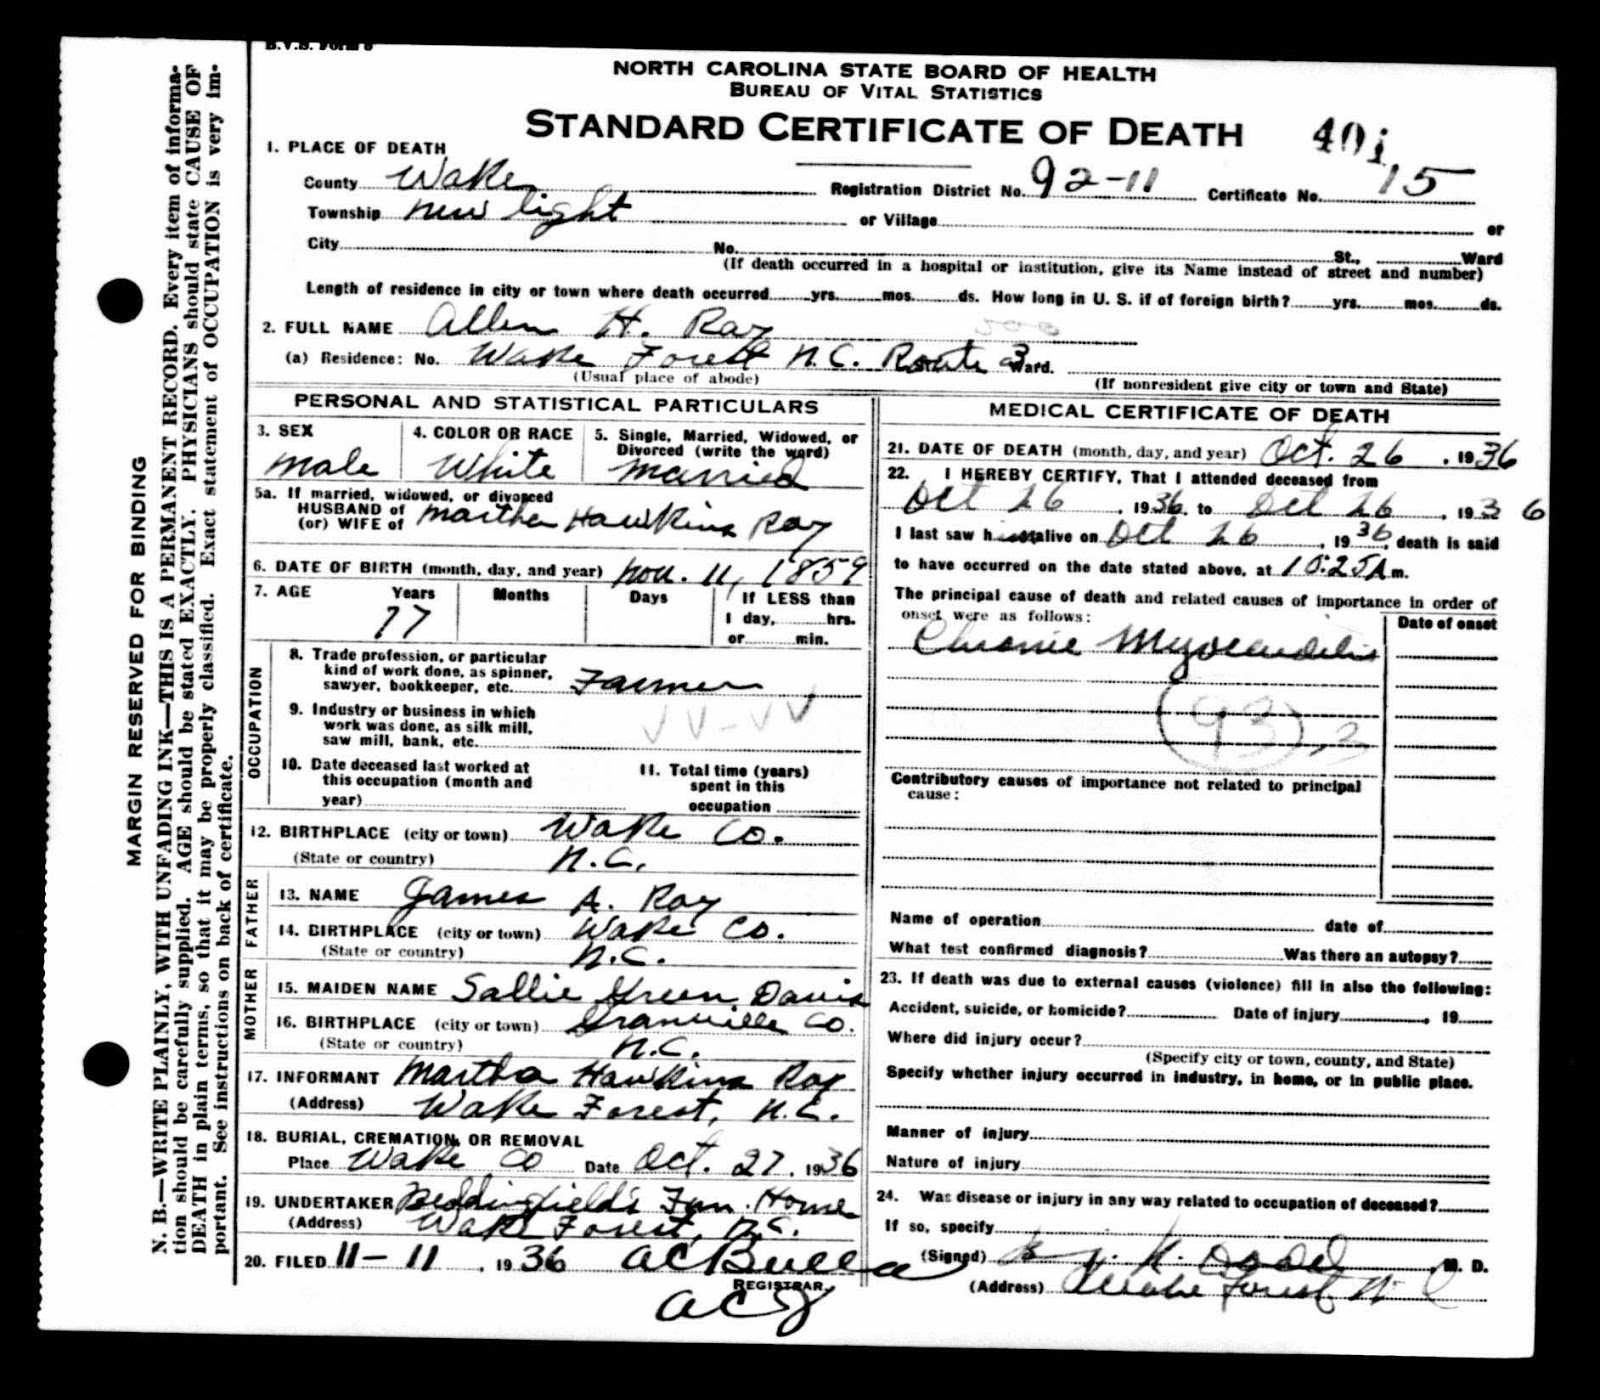 B.V.S. Form 8
NORTH CAROLINA STATE BOARD OF HEALTH
BUREAU OF VITAL STATISTICS
STANDARD CERTIFICATE OF DEATH
1. PLACE OF DEATH
County Wake Registration District No. 92-11 Certificate No. 15
Township New Light or Village or
City No. St., Ward
(If death occurred in a hospital or institution, give its Name instead of street and number)
Length of residence in city or town where death occurred yrs. mos. ds. How long in U. S. if of foreign birth? yrs. mos. ds.
2. FULL NAME Allen H. Ray
(a) Residence: No. Wake Forest N.C. Route 3 Ward.
(Usual place of abode) (If nonresident give city or town and State)
PERSONAL AND STATISTICAL PARTICULARS
3. SEX 4. COLOR OR RACE 5. Single, Married, Widowed, or
Divorced (write the word)
Male White Married
5a. If married, widowed, or divorced
HUSBAND of
(or) WIFE of Martha Hawkins Ray
6. DATE OF BIRTH (month, day, and year) Nov. 11, 1859
7. AGE Years Months Days If LESS than
77 1 day, hrs.
or min.
OCCUPATION
8. Trade profession, or particular
kind of work done, as spinner,
sawyer, bookkeeper, etc. Farmer
9. Industry or business in which
work was done, as silk mill,
saw mill, bank, etc.
10. Date deceased last worked at
this occupation (month and
year)
11. Total time (years)
spent in this
occupation
12. BIRTHPLACE (city or town) Wake Co.
(State or country) N.C.
FATHER
13. NAME James A. Ray
14. BIRTHPLACE (city or town) Wake Co.
(State or country) N.C.
MOTHER
15. MAIDEN NAME Sallie Green Davis
16. BIRTHPLACE (city or town) Granville Co.
(State or country) N.C.
17. INFORMANT Martha Hawkins Ray
(Address) Wake Forest, N.C.
18. BURIAL, CREMATION, OR REMOVAL
Place Wake Co Date Oct. 27, 1936
19. UNDERTAKER Beddingfield's Fun. Home
(Address) Wake Forest, N.C.
20. FILED 11-11, 1936
REGISTRAR.
MEDICAL CERTIFICATE OF DEATH
21. DATE OF DEATH (month, day, and year) Oct. 26, 1936
22. I HEREBY CERTIFY, That I attended deceased from
Oct 26, 1936, to Oct 26, 1936
I last saw him alive on Oct 26, 1936, death is said
to have occurred on the date stated above, at 10:25 A m.
The principal cause of death and related causes of importance in order of
onset were as follows: Date of onset
Chronic Myocarditis
93
Contributory causes of importance not related to principal
cause:
Name of operation date of
What test confirmed diagnosis? Was there an autopsy?
23. If death was due to external causes (violence) fill in also the following:
Accident, suicide, or homicide? Date of injury , 19
Where did injury occur?
(Specify city or town, county, and State)
Specify whether injury occurred in industry, in home, or in public place.
Manner of injury
Nature of injury
24. Was disease or injury in any way related to occupation of deceased?
If so, specify
(Signed) M. D.
(Address) Wake Forest N C
MARGIN RESERVED FOR BINDING
N. B.—WRITE PLAINLY, WITH UNFADING INK—THIS IS A PERMANENT RECORD. Every item of informa-
tion should be carefully supplied. AGE should be stated EXACTLY. PHYSICIANS should state CAUSE OF
DEATH in plain terms, so that it may be properly classified. Exact statement of OCCUPATION is very im-
portant. See instructions on back of certificate.